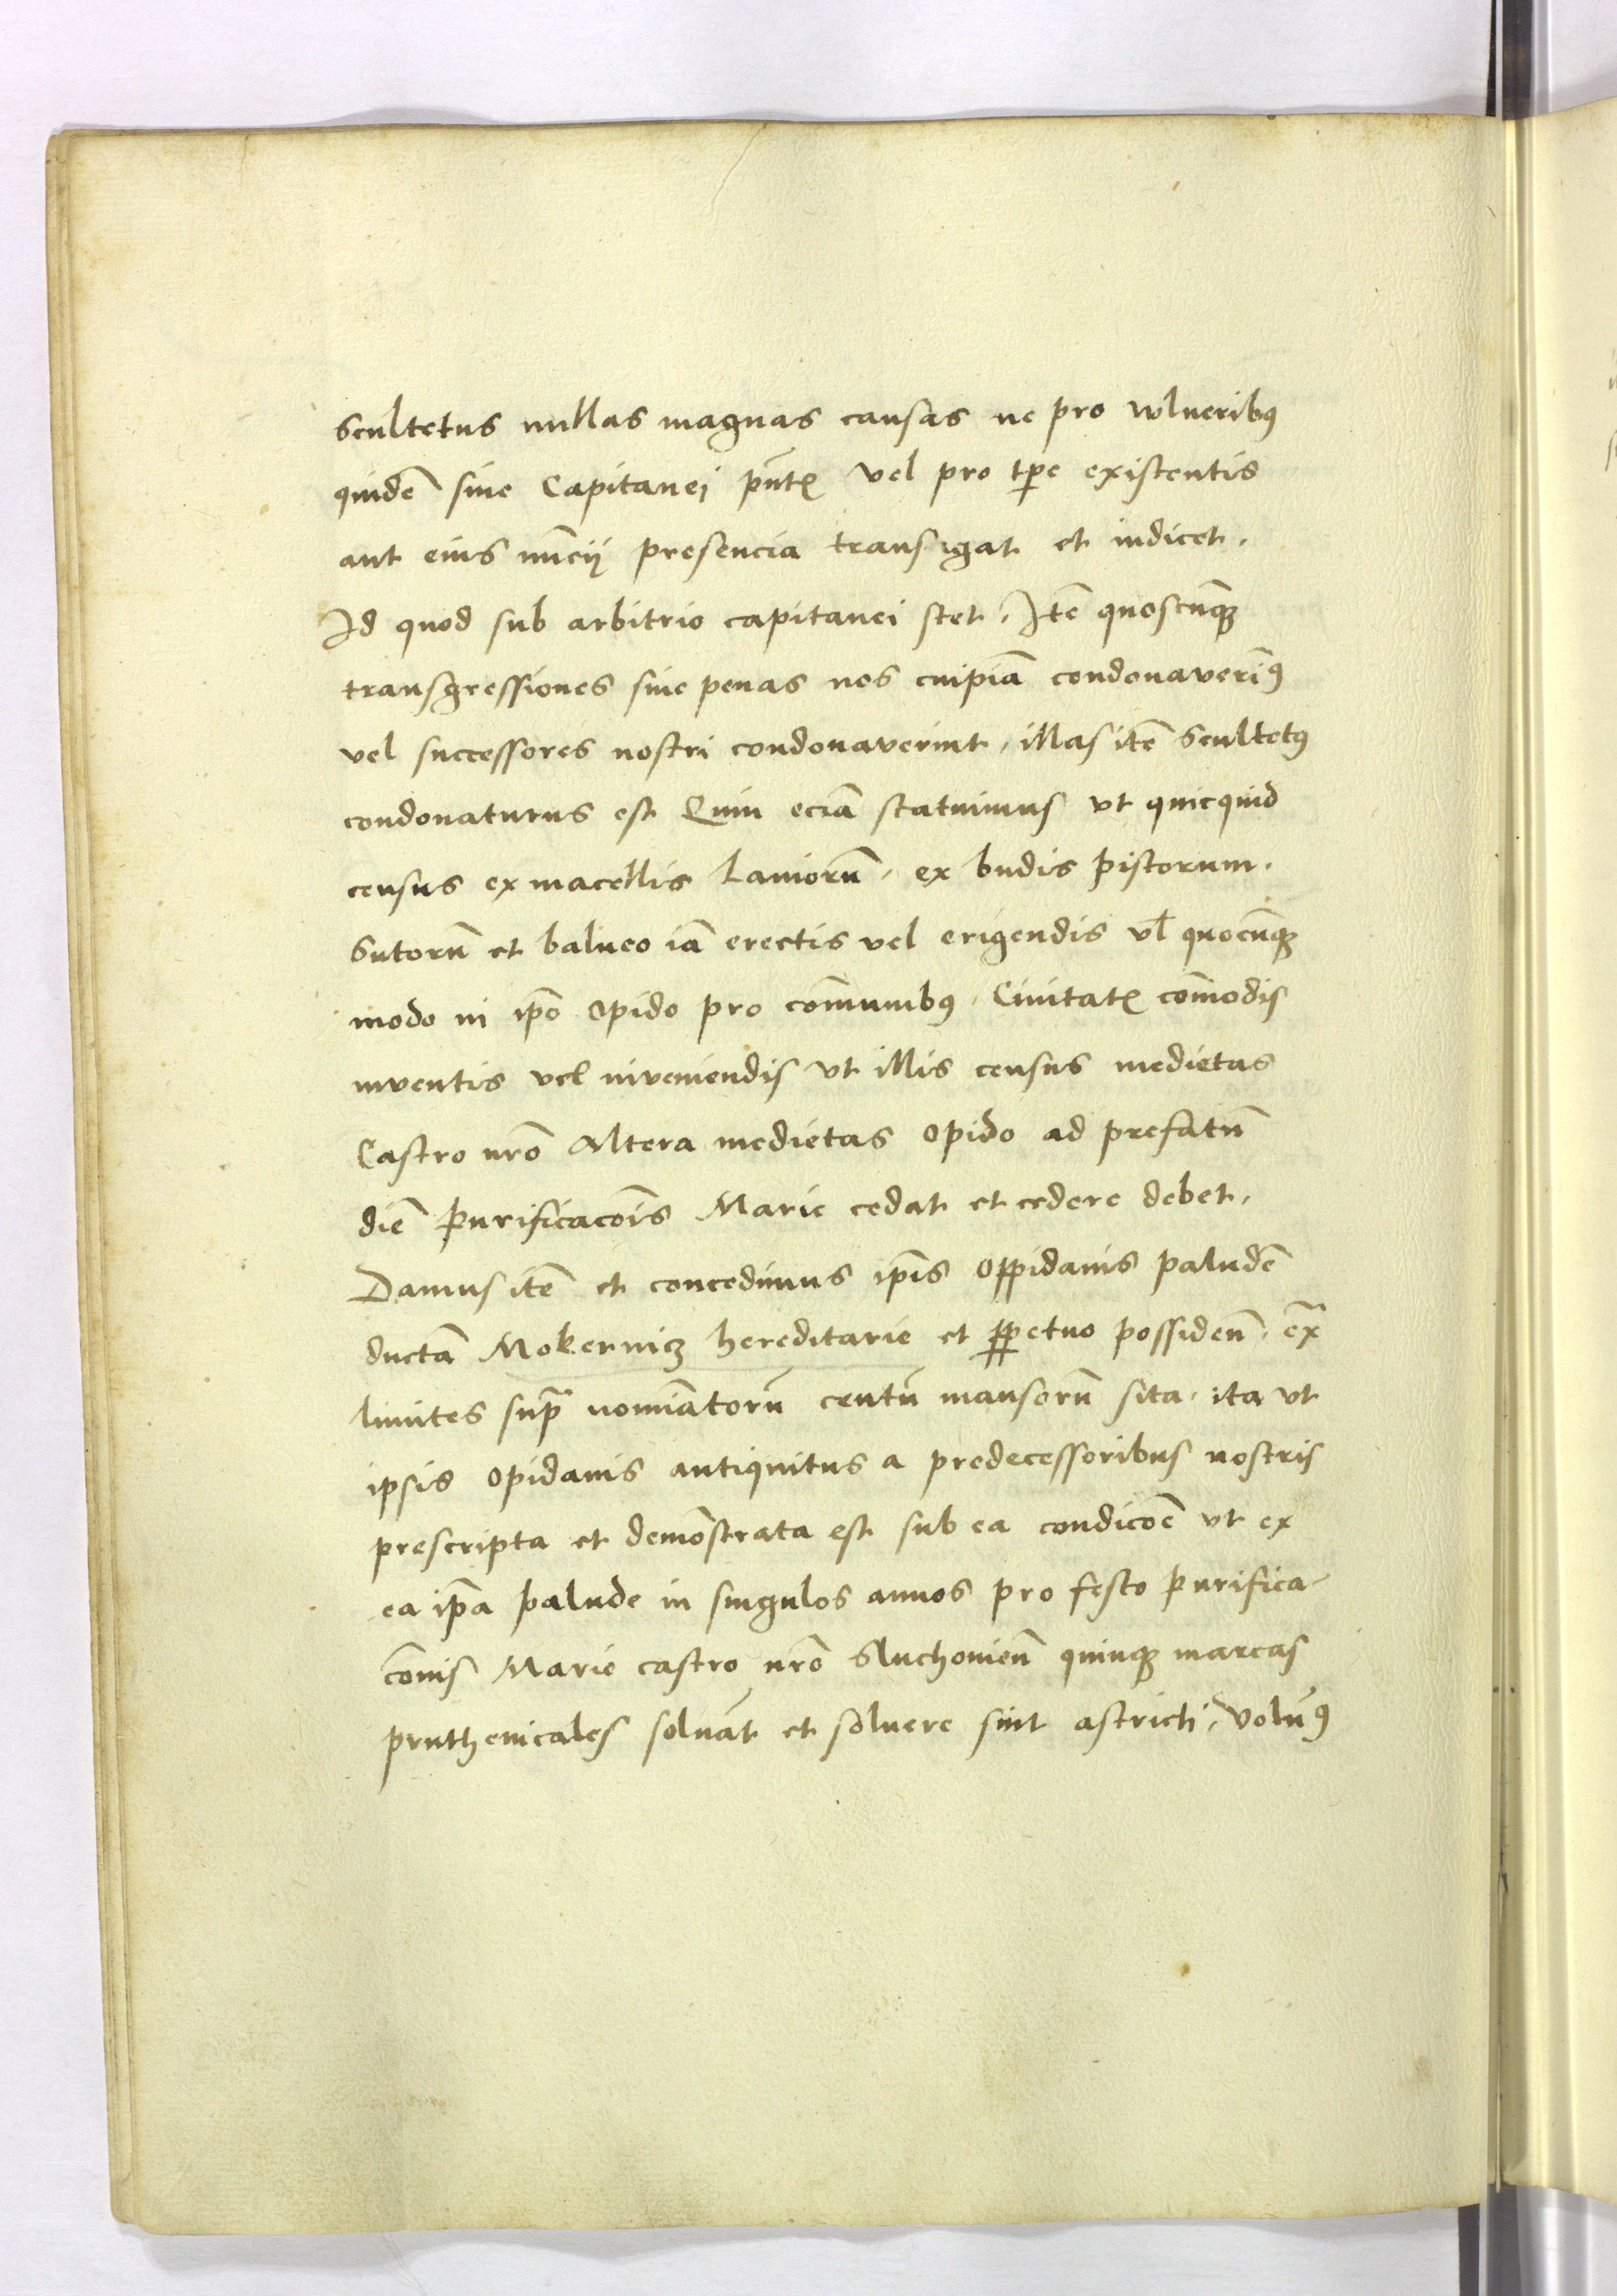 Scultetus nullas magnas causas ne pro wlneribꝰ
quidē sine Capitanei pn̄tꝭ vel pro tp̄e existentis
aut eius nūcij presencia transigat et iudicet.
Id quod sub arbitrio capitanei stet. Itē quoscūqꝫ
transgressiones siue penas nos cuipiā condonaverīꝰ
vel successores nostri condonaverint, illas itē Scultetꝰ
condonaturus est Quin eciā statuimus vt quicquid
census ex macellis Laniorū, ex budis pistorum.
Sutorū et balneo iā erectis vel erigendis vl̄ quocūqꝫ
modo in ip̄o Opido pro cōmunibꝰ Ciuitatꝭ cōmodis
inventis vel inveniendis vt illis census medietas
Castro nr̄o Altera medietas Opido ad prefatū
diē Purificacōis Marie cedat et cedere debet.
Damus itē et concedimus ip̄is Oppidanis paludē
dictā Mokernicz hereditarie et ꝑpetuo possidēn. ex̄a
limites sup̄ nomīatorū centū mansorū sita, ita vt
ipsis Opidanis antiquitus a predecessoribus nostris
prescripta et demōstrata est sub ea condicōe vt ex
ea ip̄a palude in singulos annos pro festo Purifica-
cōnis Marie castro nr̄o Sluchovien̄ quinqꝫ marcas
pruthenicales soluāt et soluere sint astricti, Volūꝰ